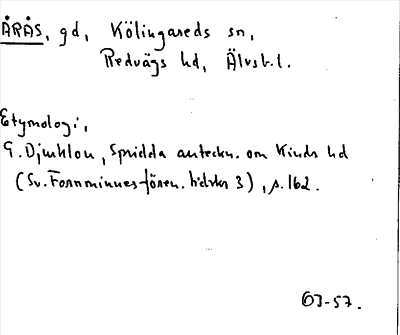 ÅRÅS, gd, Kölingareds sn,
Redvägs hd, Älvsb. l.
Etymologi,
G. Djurklou, Spridda anteckn. om Kinds hd
(Sv. Fornminnes-fören. tidskr 3), s. 162.
OJ-57.